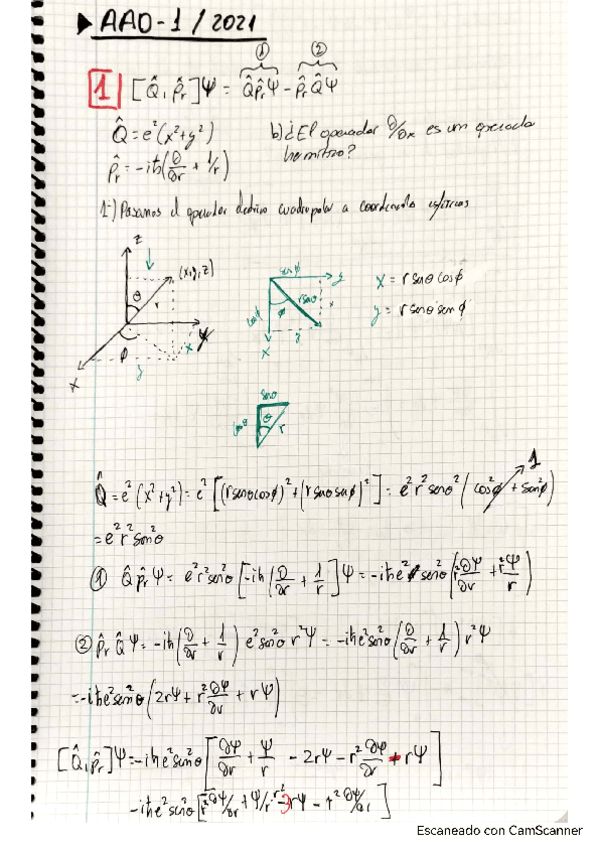 ▶ AAD-1/2021
① ②
1 [Q̂, p̂r]Ψ = Q̂p̂rΨ - p̂rQ̂Ψ
Q̂ = e²(x²+y²) b) ¿El operador ∂/∂x es un operador
hermítico?
p̂r = -iħ(∂/∂r + 1/r)
1º) Pasamos el operador cuadrupolar a coordenadas esféricas
z
(x,y,z)
θ r
y
φ
x
y
x
senφ
y
cosφ φ rsenθ x
x y
x = r senθ cosφ
y = r senθ senφ
senθ
cosθ θ r
1
Q̂ = e²(x²+y²) = e²[(rsenθcosφ)²+(rsenθsenφ)²] = e²r²senθ²(cos²φ + sen²φ)
= e²r²senθ²
① Q̂p̂rΨ = e²r²senθ²[-iħ(∂/∂r + 1/r)]Ψ = -iħe²senθ²(r²∂Ψ/∂r + r²Ψ/r)
② p̂rQ̂Ψ = -iħ(∂/∂r + 1/r)e²senθ²r²Ψ = -iħe²senθ²(∂/∂r + 1/r)r²Ψ
= -iħe²senθ²(2rΨ + r²∂Ψ/∂r + rΨ)
[Q̂,p̂r]Ψ = -iħe²senθ²[∂Ψ/∂r + Ψ/r - 2rΨ - r²∂Ψ/∂r - rΨ]
-iħe²senθ²[r²∂Ψ/∂r + Ψ/r r² - 3rΨ - r²∂Ψ/∂r]
Escaneado con CamScanner